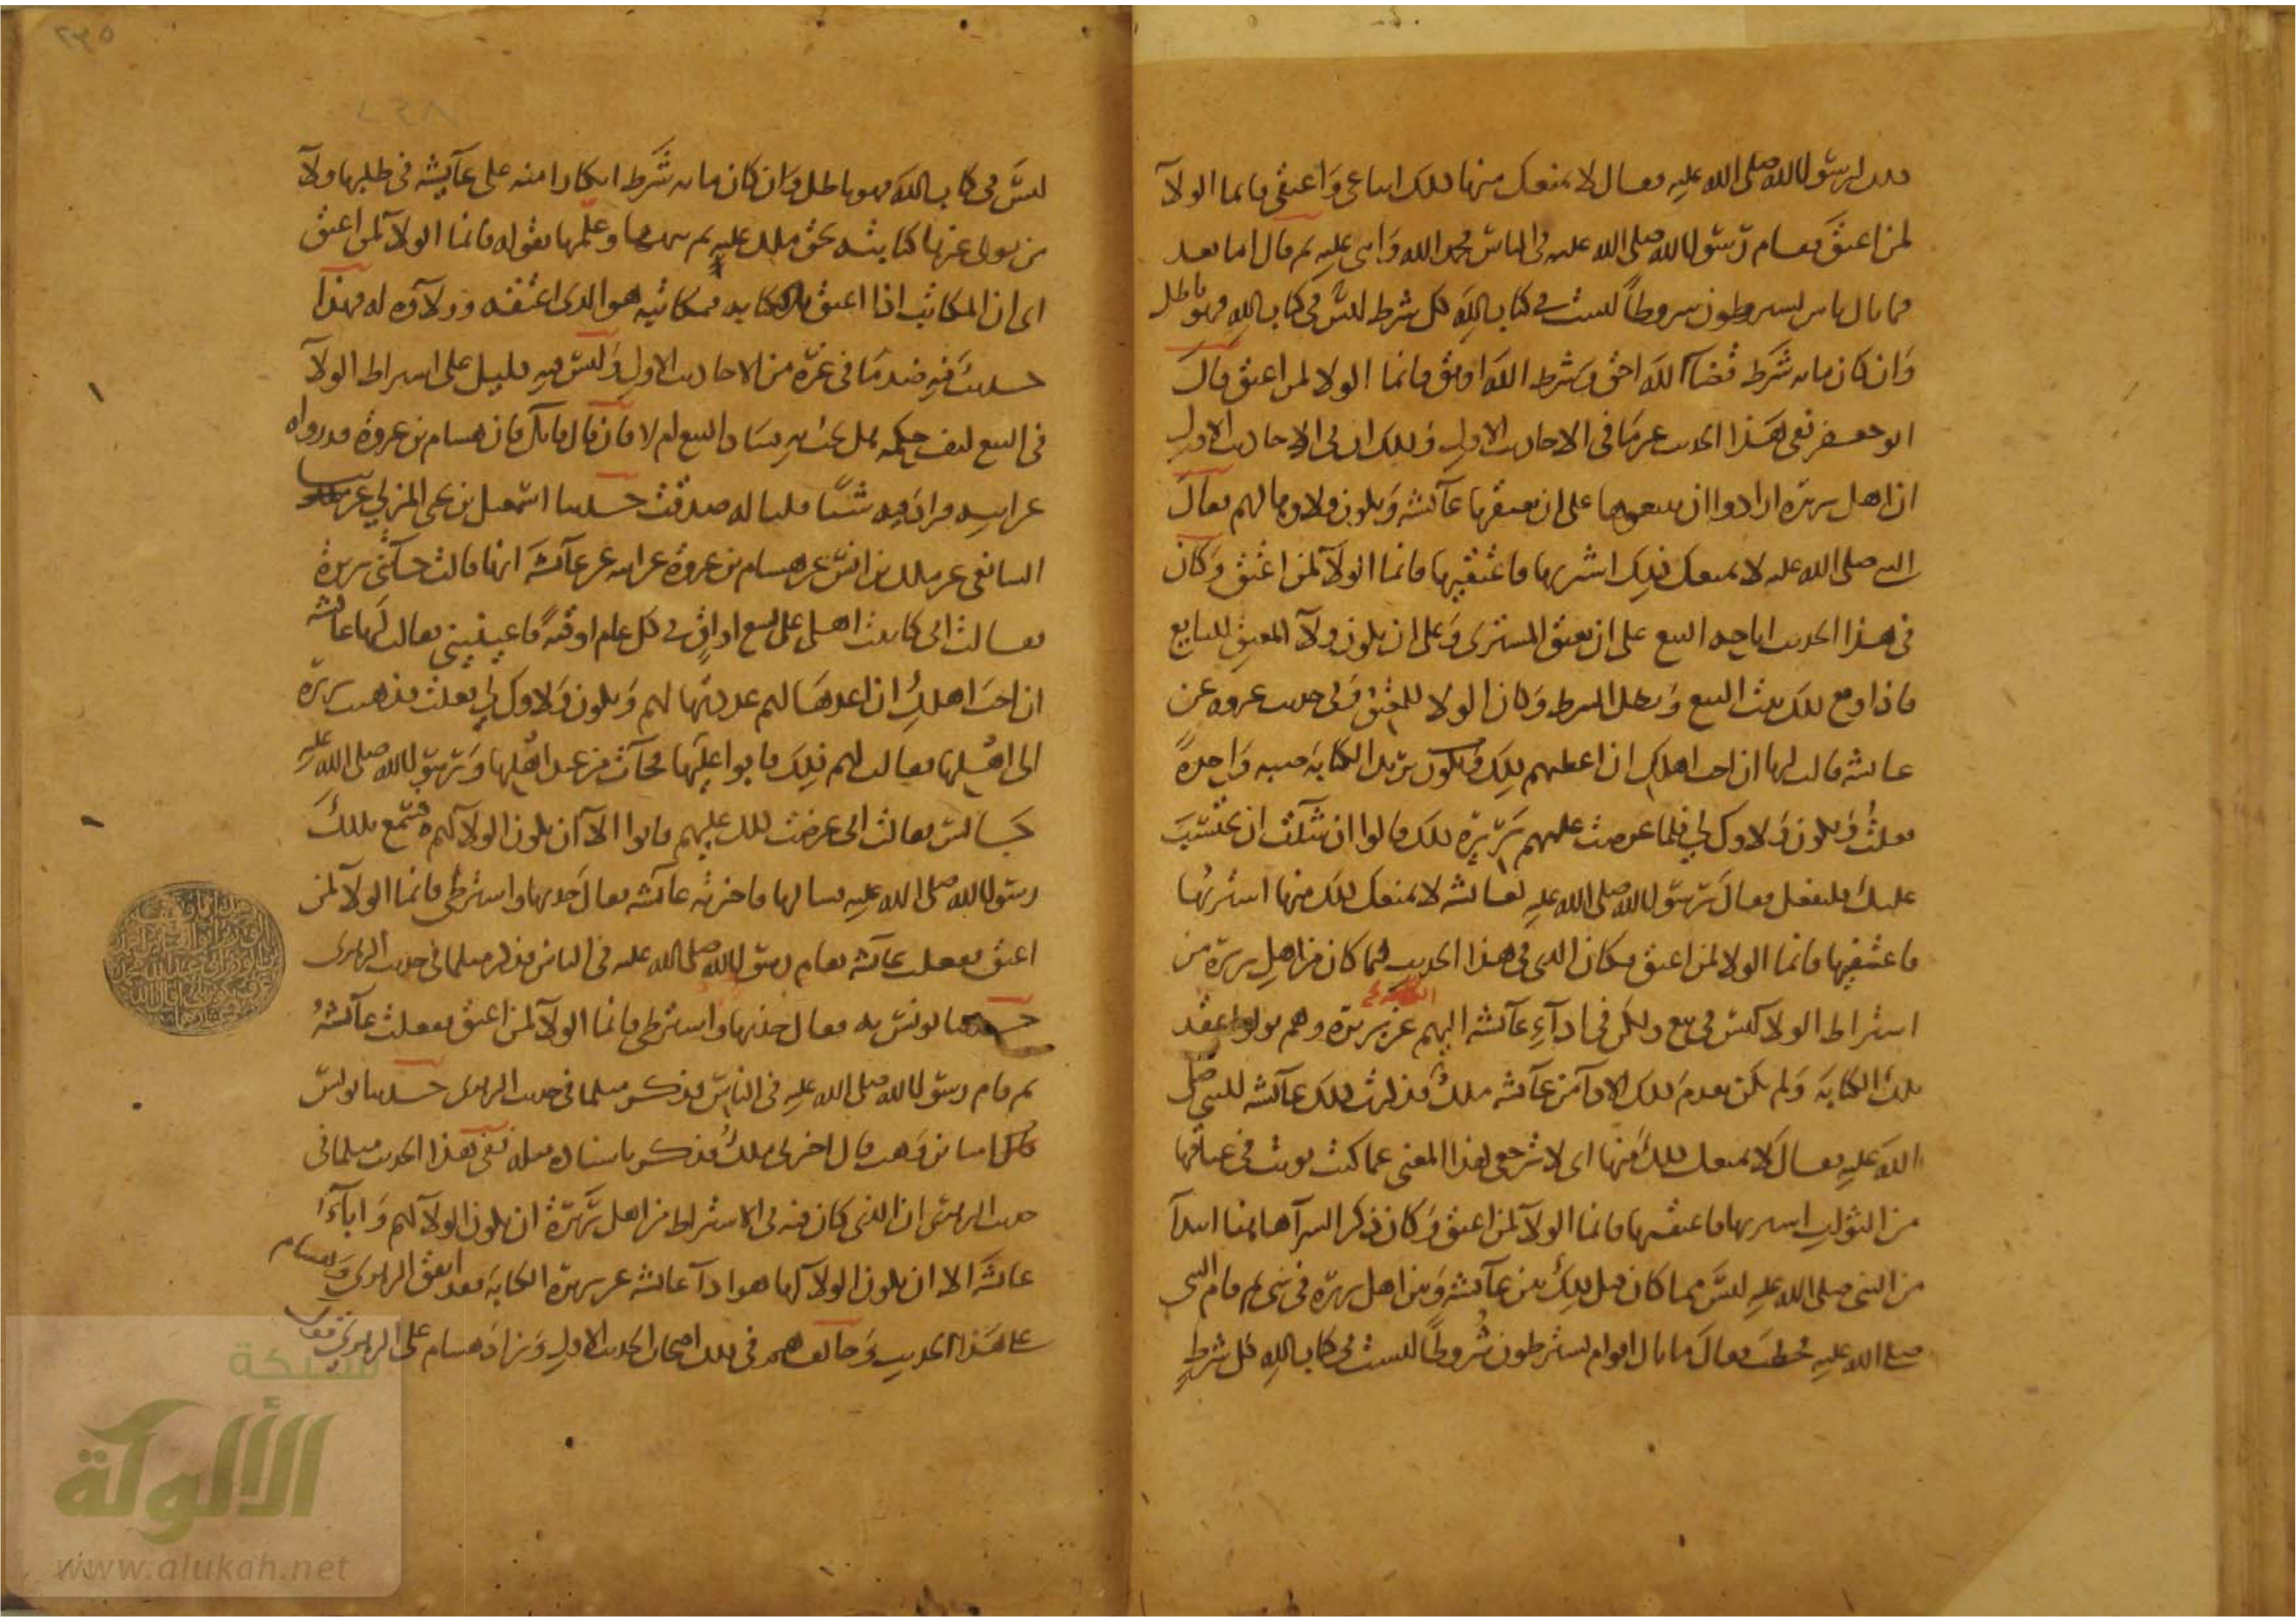 ذلك لرسول الله صلى الله عليه فقال لا يمنعك منها ذلك ابتاعي وأعتقي فإنما الولآ
لمن أعتق فقام رسول الله صلى الله عليه في الناس فحمد الله وأثنى عليه ثم قال أما بعد
فما بال ناس يشترطون شروطاً ليست في كتاب الله كل شرط ليس في كتاب الله فهو باطل
وان كان مائة شرط قضآ الله أحق وشرط الله اوثق فإنما الولا لمن اعتق قال
ابو جعفر ففي هذا الحديث غير ما في الاحاديث الاول وذلك ان في الاحاديث الاول
ان اهل بريرة ارادوا ان يبيعوها على ان تعتقها عآئشة ويكون ولاوها لهم فقال
النبي صلى الله عليه لا يمنعك ذلك اشتريها فاعتقيها فانما الولآ لمن اعتق وكان
في هذا الحديث اباحه البيع على ان يعتق المشتري وعلى ان يكون ولآ المعتق للبايع
فاذا وقع ذلك ثبت البيع وبطل الشرط وكان الولا للمعتق وفي حديث عروه عن
عائشة قالت لها ان احب اهلك ان اعطيهم ذلك تريد الكتابة صبه واحدةً
فعلت ويكون ولاوك لي فلما عرضت عليهم بريرة ذلك قالوا ان شآئت ان تحتسب
عليك فلتفعل فقال رسول الله صلى الله عليه لعائشة لا يمنعك ذلك منها اشتريها
فاعتقيها فانما الولا لمن اعتق فكان الذي في هذا الحديث مما كان من اهل بريرة من
اشتراط الولا ليس في بيع ولكن في ادآء عآئشة اليهم عن بريرة وهم تولوا عقد
تلك الكتابة ولم يكن تقدم ذلك الادآ من عآئشة ملك فذكرت ذلك عآئشة للنبي صلى
الله عليه فقال لا يمنعك ذلك منها اي لا ترجعي لهذا المعنى عما كنت نويت في عتاقها
من الثواب اشتريها فاعتقيها فانما الولآ لمن اعتق وكان ذكر الشرآ هاهنا ابتدآ
من النبي صلى الله عليه ليس مما كان قبل ذلك بين عآئشة وبين اهل بريرة في شي ثم قام النبي
صلى الله عليه فخطب فقال ما بال اقوام يشترطون شروطاً ليست في كتاب الله كل شرط
ليس في كتاب الله فهو باطل وان كان مائة شرط انكارا منه على عآئشة في طلبها ولآ
من تولى غيرها كتابته بحق ملك عليه ثم نبهها وعلمها بقوله فانما الولآ لمن اعتق
اي ان المكاتب اذا اعتق بالكتابة فمكاتبه هو الذي اعتقه وولآوه له فهذا
حديث فيه ضد ما في غيره من الاحاديث الاول وليس فيه دليل على اشتراط الولآ
في البيع كيف حكمه هل يجب به فساد البيع ام لا فان قال قايل فان هشام بن عروة قد رواه
عن ابيه فزاد فيه شيئا قلنا له صدقت حدثنا اسمعيل بن يحيى المزني
الشافعي عن ملك بن انس عن هشام بن عروة عن ابيه عن عآئشة انها قالت جآتني بريرة
فقالت اني كاتبت اهلي على تسع اواق في كل عام اوقيةً فاعينيني فقالت لها عائشة
ان احب اهلكِ ان اعدها لهم عددتها لهم ويكون ولاوك لي فعلت فذهبت بريرة
الى اهلها فقالت لهم ذلك فابوا عليها فجآت من عند اهلها ورسول الله صلى الله عليه
جالس فقالت اني عرضت ذلك عليهم فابوا الآ ان يكون الولآ لهم فسمع بذلك
رسول الله صلى الله عليه فسالها فاخبرته عآئشة فقال خذيها واشترطي فانما الولآ لمن
اعتق ففعلت عآئشة فقام رسول الله صلى الله عليه في الناس فذكر مثل ما في حديث الزهري
فقال خذيها واشترطي فانما الولآ لمن اعتق ففعلت عآئشةُ
ثم قام رسول الله صلى الله عليه في الناس فذكر مثل ما في حديث الزهري حدثنا يونس
قال ابنا ابن وهب قال اخبرني ملك فذكر باسناده مثله ففي هذا الحديث مثل ما في
حديث الزهري ان الذي كان فيه في الاشتراط من اهل بريرة ان يكون الولآ لهم وابآء
عائشة الا ان يكون الولآ لها هو ادآ عائشة عن بريرة الكتابة فقد اتفق الزهري وهشام
على هذا الحديث وخالفا هم في ذلك اصحاب الحديث الاول وزاد هشام على الزهري قول
شبكة
الألوكة
www.alukah.net